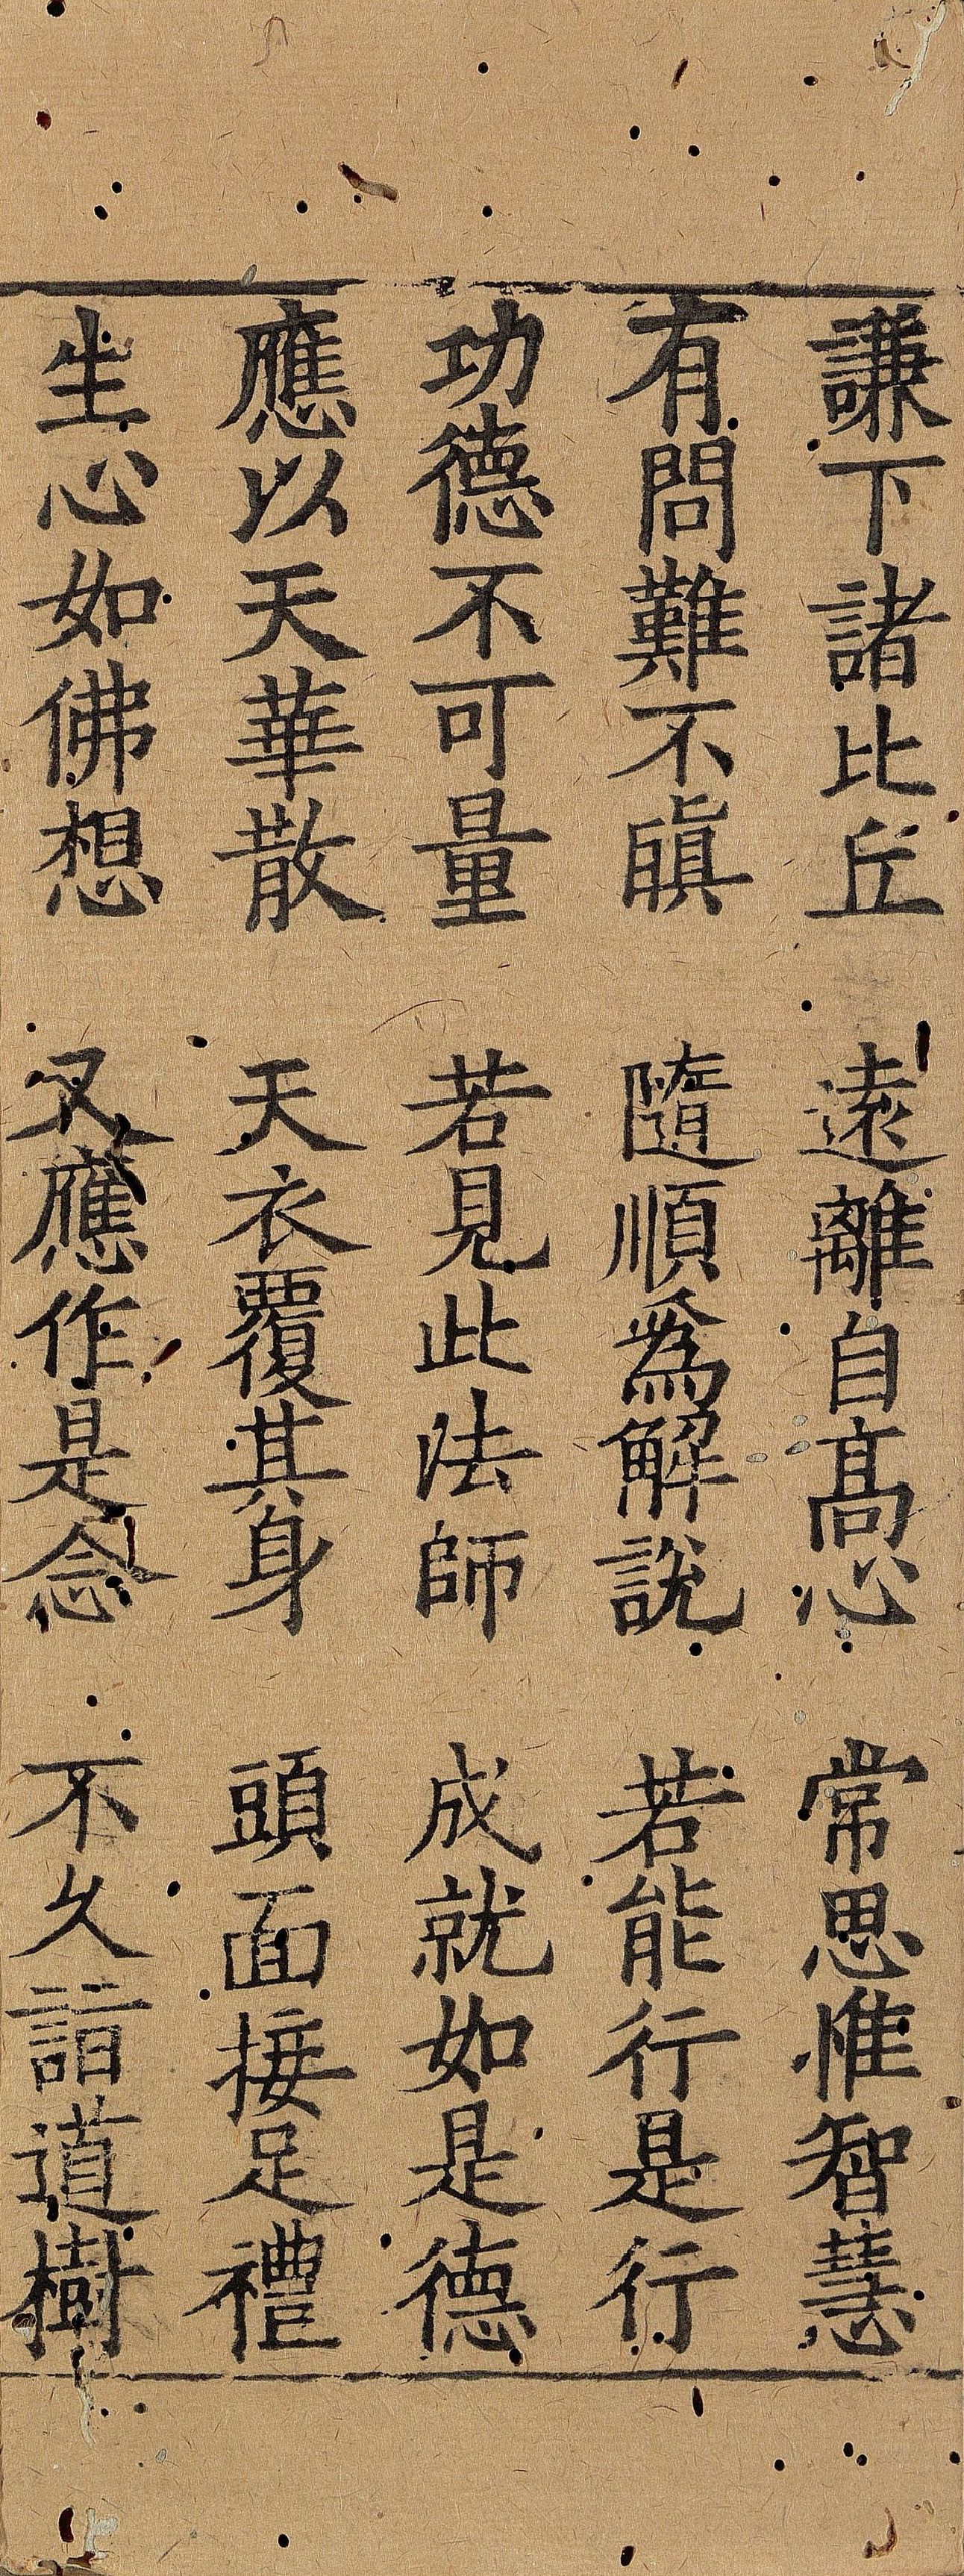 謙下諸比丘　遠離自髙心　常思惟智慧
有問難不瞋　隨順爲解說　若能行是行
功德不可量　若見此法師　成就如是德
應以天華散　天衣覆其身　頭面接足禮
生心如佛想　又應作是念　不久詣道樹